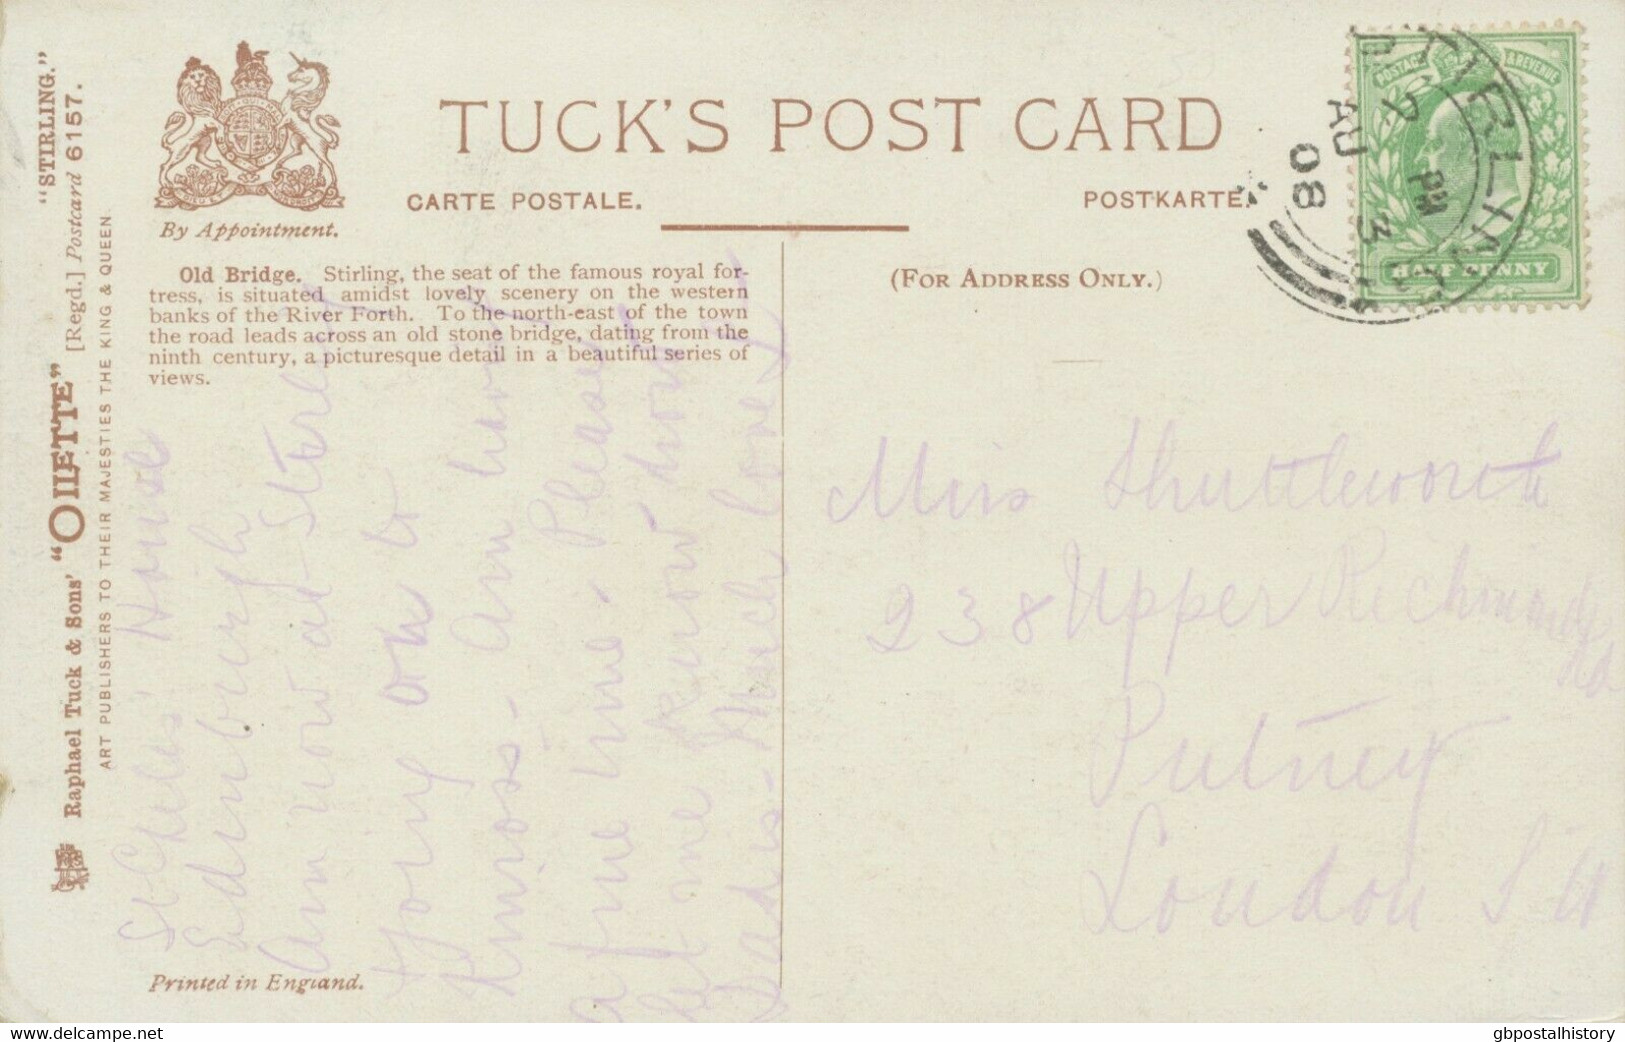 "STIRLING."
Raphael Tuck & Sons' "OILETTE" [Regd.] Postcard 6157.
ART PUBLISHERS TO THEIR MAJESTIES THE KING & QUEEN.
By Appointment.
TUCK'S POST CARD
CARTE POSTALE.
POSTKARTE.
Old Bridge. Stirling, the seat of the famous royal for-
tress, is situated amidst lovely scenery on the western
banks of the River Forth. To the north-east of the town
the road leads across an old stone bridge, dating from the
ninth century, a picturesque detail in a beautiful series of
views.
(FOR ADDRESS ONLY.)
POSTAGE & REVENUE
HALF PENNY
STIRLING
PM
AU 3
08
St Giles' House
Edinburgh
Am now at
on to
Kinross - Am having
a fine time. Please
let me know how
Dad is - Much love
Miss Shuttleworth
238 Upper Richmond Rd
Putney
London S W
Printed in England.
www.delcampe.net
gbpostalhistory